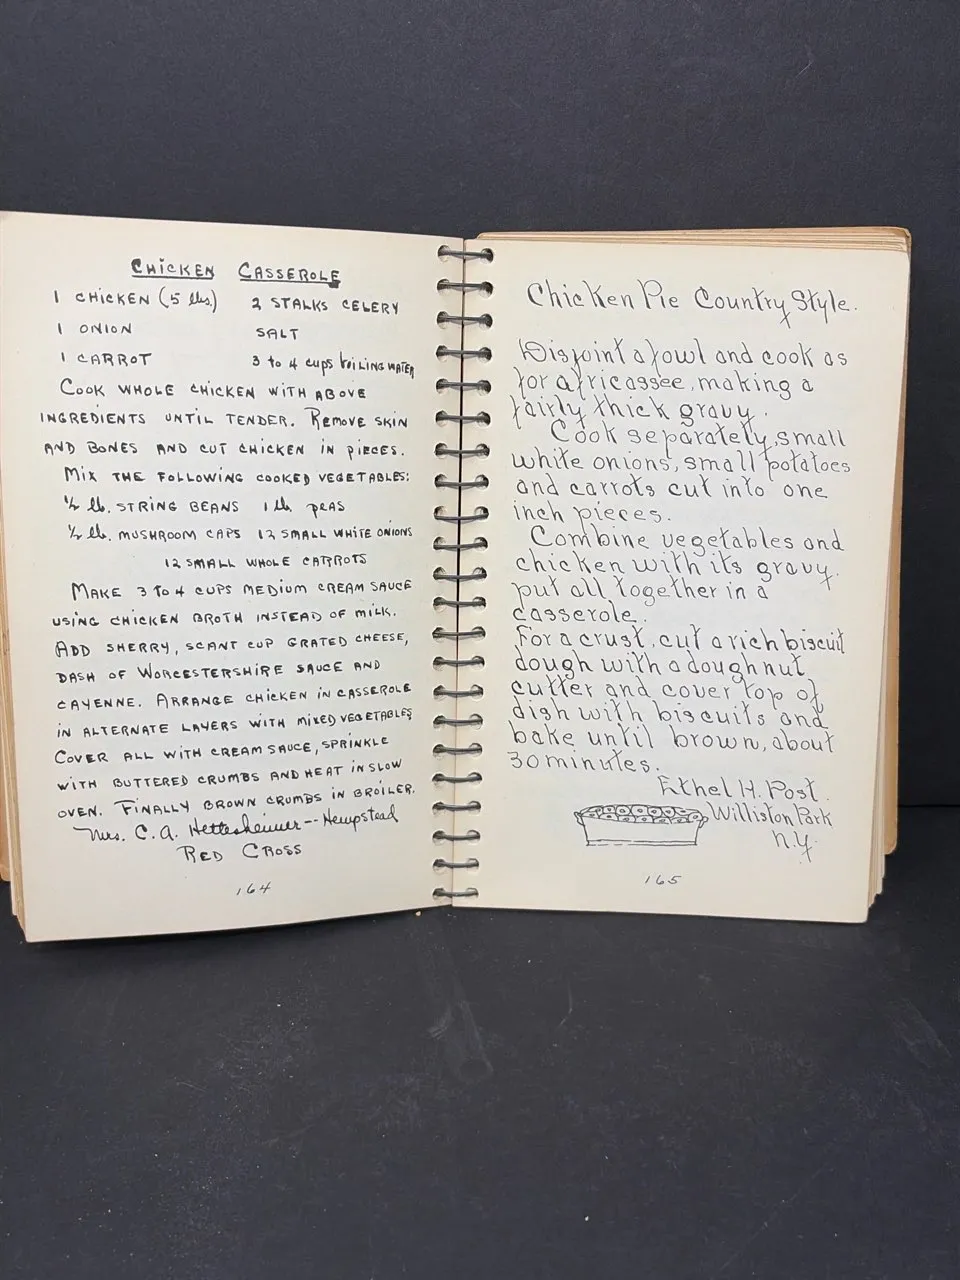 CHICKEN CASSEROLE
1 CHICKEN (5 lbs.) 2 STALKS CELERY
1 ONION SALT
1 CARROT 3 to 4 cups BOILING WATER
COOK WHOLE CHICKEN WITH ABOVE
INGREDIENTS UNTIL TENDER. REMOVE SKIN
AND BONES AND CUT CHICKEN IN PIECES.
MIX THE FOLLOWING COOKED VEGETABLES:
1/2 lb. STRING BEANS 1 lb. PEAS
1/2 lb. MUSHROOM CAPS 12 SMALL WHITE ONIONS
12 SMALL WHOLE CARROTS
MAKE 3 TO 4 CUPS MEDIUM CREAM SAUCE
USING CHICKEN BROTH INSTEAD OF MILK.
ADD SHERRY, SCANT CUP GRATED CHEESE,
DASH OF WORCESTERSHIRE SAUCE AND
CAYENNE. ARRANGE CHICKEN IN CASSEROLE
IN ALTERNATE LAYERS WITH MIXED VEGETABLES
COVER ALL WITH CREAM SAUCE, SPRINKLE
WITH BUTTERED CRUMBS AND HEAT IN SLOW
OVEN. FINALLY BROWN CRUMBS IN BROILER.
Mrs. C. A. Hettesheimer -- Hempstead
RED CROSS
164
Chicken Pie Country Style.
Disjoint a fowl and cook as
for a fricassee, making a
fairly thick gravy.
Cook separately, small
white onions, small potatoes
and carrots cut into one
inch pieces.
Combine vegetables and
chicken with its gravy.
put all together in a
casserole.
For a crust, cut a rich biscuit
dough with a doughnut
cutter and cover top of
dish with biscuits and
bake until brown, about
30 minutes.
Ethel H. Post.
Williston Park
N.Y.
165